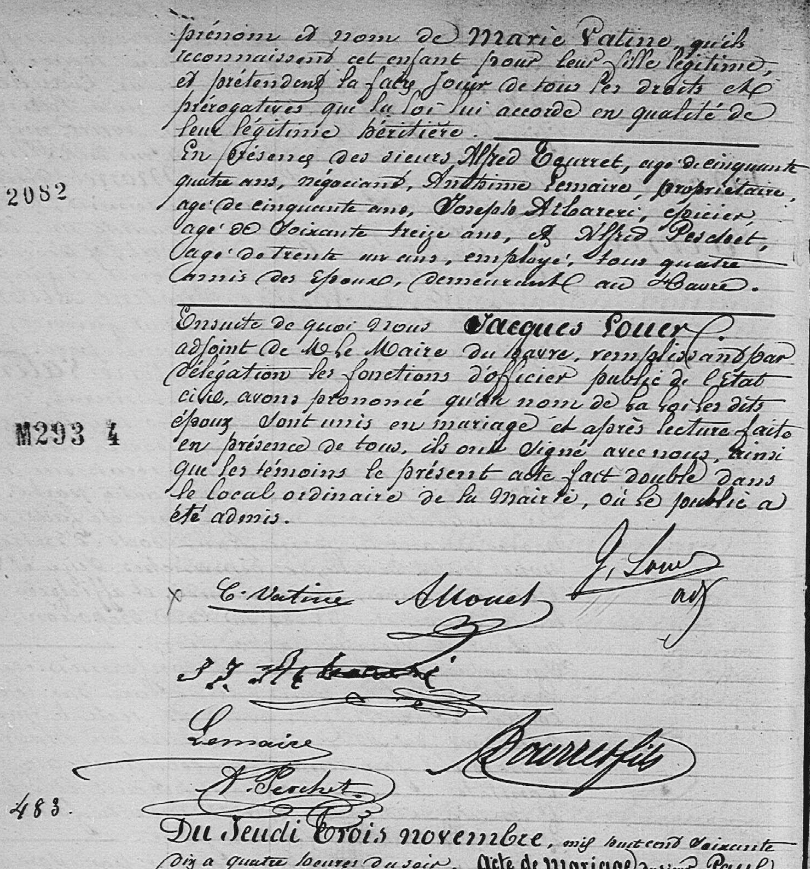 prénom et nom de Marie Vatine qu'ils
reconnaissent cet enfant pour leur fille légitime,
et prétendent la faire jouir de tous les droits et
prérogatives que la loi lui accorde en qualité de
leur légitime héritière.
En présence des sieurs Alfred Tourret, agé de cinquante
quatre ans, négociant, Anthime Lemaire, propriétaire,
agé de cinquante ans, Joseph Albareri, épicier,
agé de soixante treize ans, et Alfred Perchet,
agé de trente un ans, employé, tous quatre
amis des époux, demeurant au Havre.
2082
Ensuite de quoi nous Jacques Louer
adjoint de M. le Maire du havre, remplissant par
délégation les fonctions d'officier public de l'Etat
civil, avons prononcé qu'au nom de la loi les dits
époux sont unis en mariage et après lecture faite
en présence de tous, ils ont signé avec nous, ainsi
que les témoins le présent acte fait double dans
le local ordinaire de la Mairie, où le public a
été admis.
M293 4
J. Louer
adj
C. Vatine
J J
Lemaire
Tourret fils
A. Perchet
483.
Du Jeudi Trois novembre, mil huit cent soixante
dix a quatre heures du soir, Acte de Mariage Paul